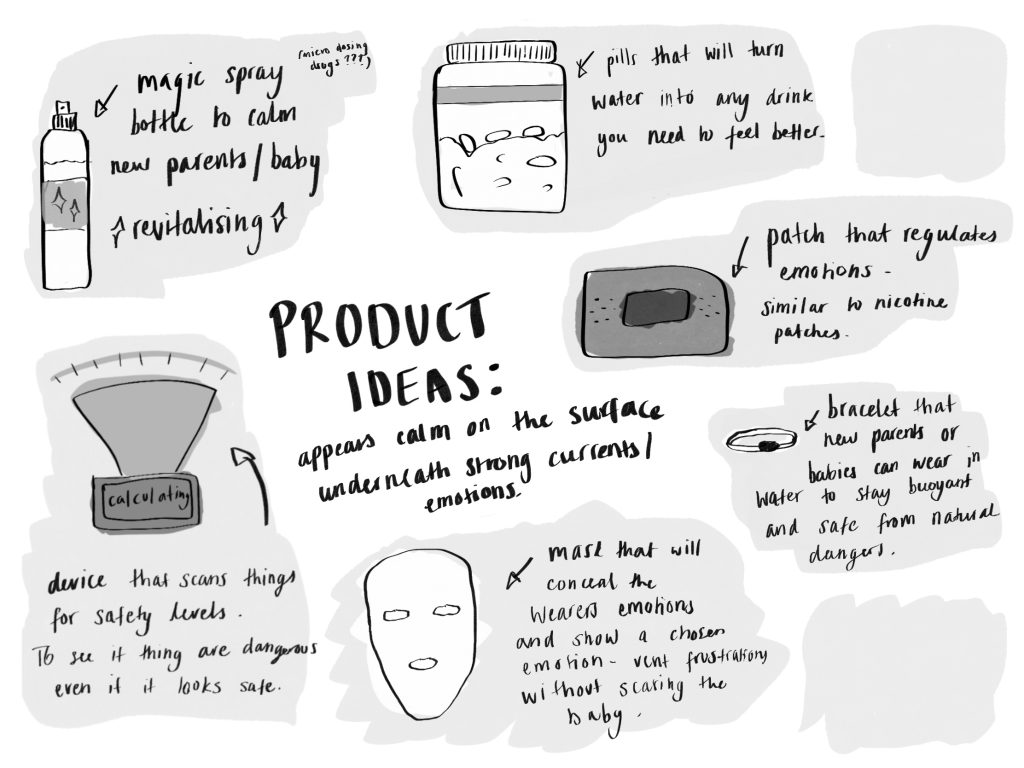 magic spray
bottle to calm
new parents/baby
revitalising
(micro dosing
drugs???)
pills that will turn
water into any drink
you need to feel better.
patch that regulates
emotions -
similar to nicotine
patches.
PRODUCT
IDEAS:
appears calm on the surface
underneath strong currents/
emotions.
calculating
device that scans things
for safety levels.
To see if thing are dangerous
even if it looks safe.
bracelet that
new parents or
babies can wear in
water to stay buoyant
and safe from natural
dangers.
mask that will
conceal the
wearers emotions
and show a chosen
emotion - vent frustration
without scaring the
baby.